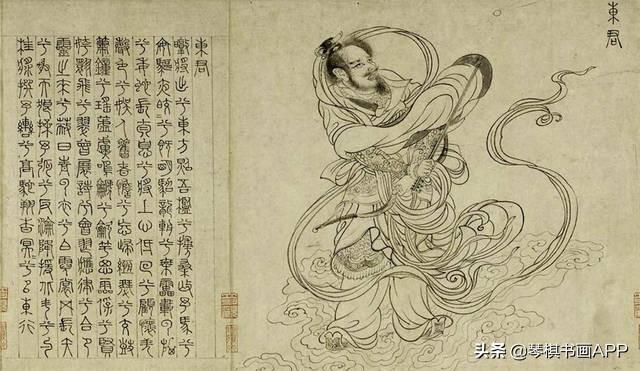 東君
東君
暾將出兮東方照吾檻兮扶桑余馬兮
安驅夜皎兮既明駕龍輈兮乘雷載雲旗
兮委蛇長太息兮將上心低回兮顧懷羌
聲色兮娛人觀者憺兮忘歸緪瑟兮交鼓
簫鐘兮瑤簴鳴兮竽思靈保兮賢
姱翾飛兮翠曾展詩兮會舞應律兮合節
靈之來兮蔽日青雲衣兮白霓裳舉長矢
兮射天狼操余弧兮反淪降援北斗兮酌
桂漿撰余轡兮高駝翔杳冥兮以東行
头条 @琴棋书画APP